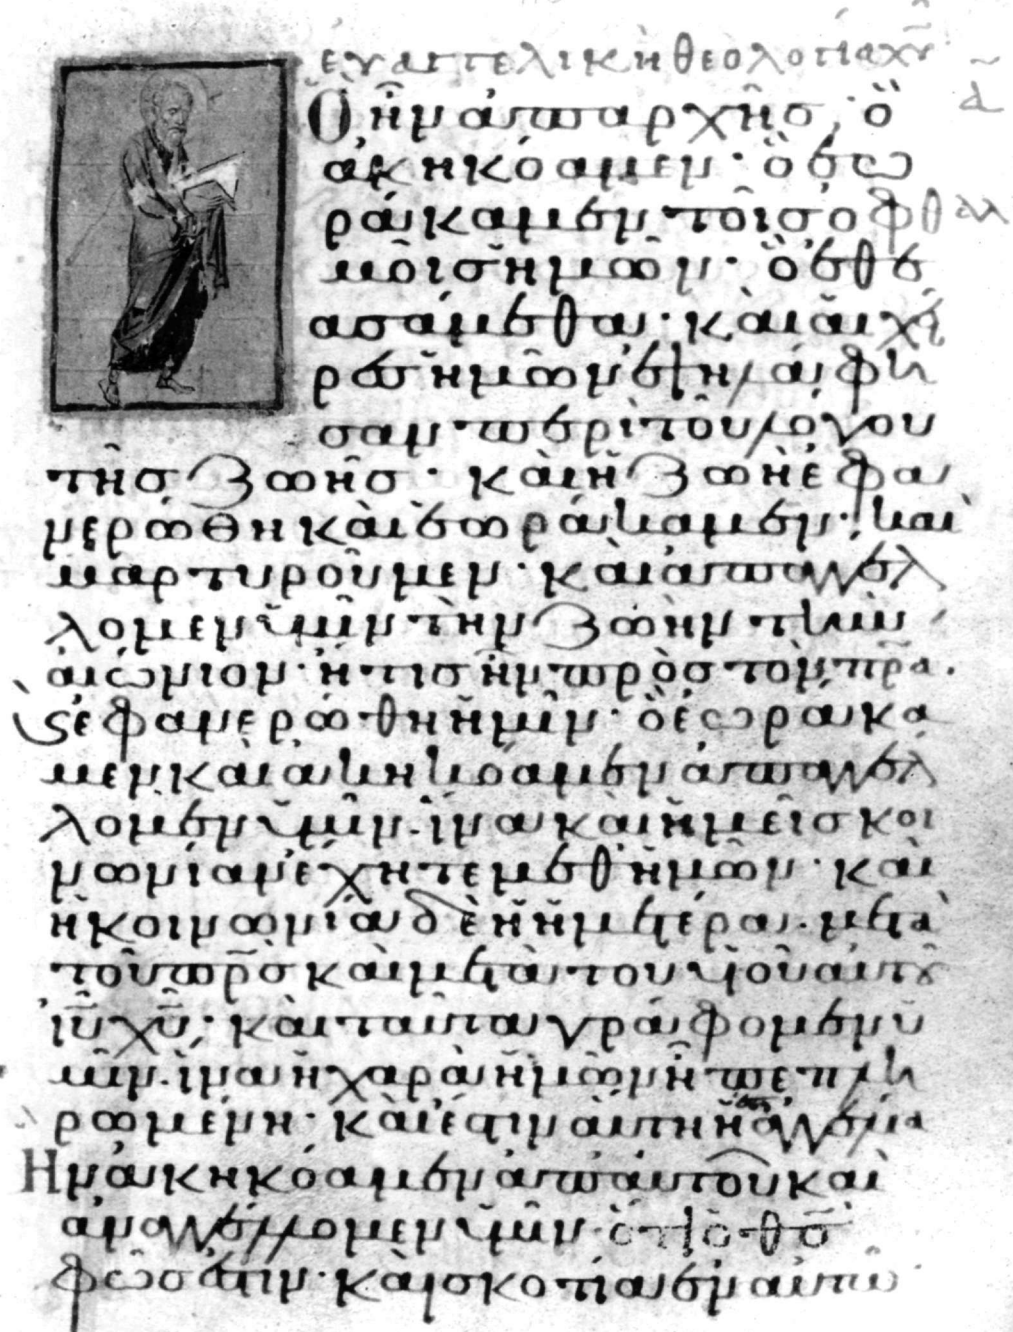 εὐαγγελικὴ θεολογία χυ
α
Ὃ ἦν ἀπαρχῆσ· ὃ
ἀκηκόαμεν· ὃ ἑω
ράκαμεν τοῖσ οφθαλ
μοῖσ ἡμῶν· ὃ ἐθε
ασάμεθα· καὶ αἱ χεῖ
ρεσ ἡμῶν ἐψηλάφη
σαν περὶ τοῦ λόγου
τῆσ ζωῆσ· καὶ ἡ ζωὴ ἐφα
νερώθη καὶ ἑωράκαμεν· καὶ
μαρτυροῦμεν· καὶ ἀπαγγέλ
λομεν ὑμῖν τὴν ζωὴν τὴν
αἰώνιον· ἥτισ ἦν πρὸσ τὸν πρα·
ϛ ἐφανερώθη ἡμῖν· ὃ ἑωράκα
μεν καὶ ἀκηκόαμεν ἀπαγγέλ
λομεν ὑμῖν· ἵνα καὶ ἡμεῖσ κοι
νωνίαν ἔχητε μεθ ἡμῶν· καὶ
ἡ κοινωνία δὲ ἡ ἡμετέρα· μετὰ
τοῦ πρσ καὶ μετὰ του υἱοῦ αὐτοῦ
ιυ χυ· καὶ ταῦτα γράφομεν ὑ
μῖν· ἵνα ἡ χαρὰ ἡμῶν ἦ πεπλη
ρωμένη· καὶ ἔστιν αὕτη ἡ ἀγγελία
Ην ἀκηκόαμεν ἀπ αὐτοῦ καὶ
ἀναγγέλλομεν ὑμῖν· ὅτι ὁ θσ
φῶσ ἐστιν· καὶ σκοτία ἐν αὐτῶ